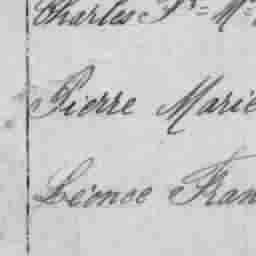 Charles Fs = M
Pierre Marie
Léonce Fran